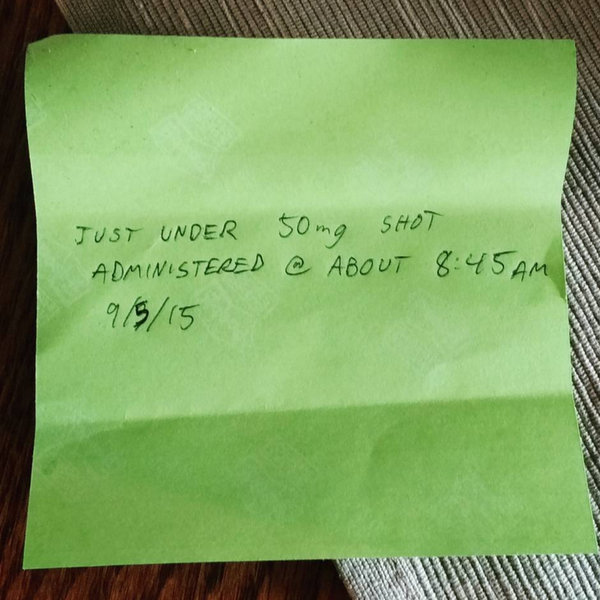 JUST UNDER 50mg SHOT
ADMINISTERED @ ABOUT 8:45AM
9/5/15